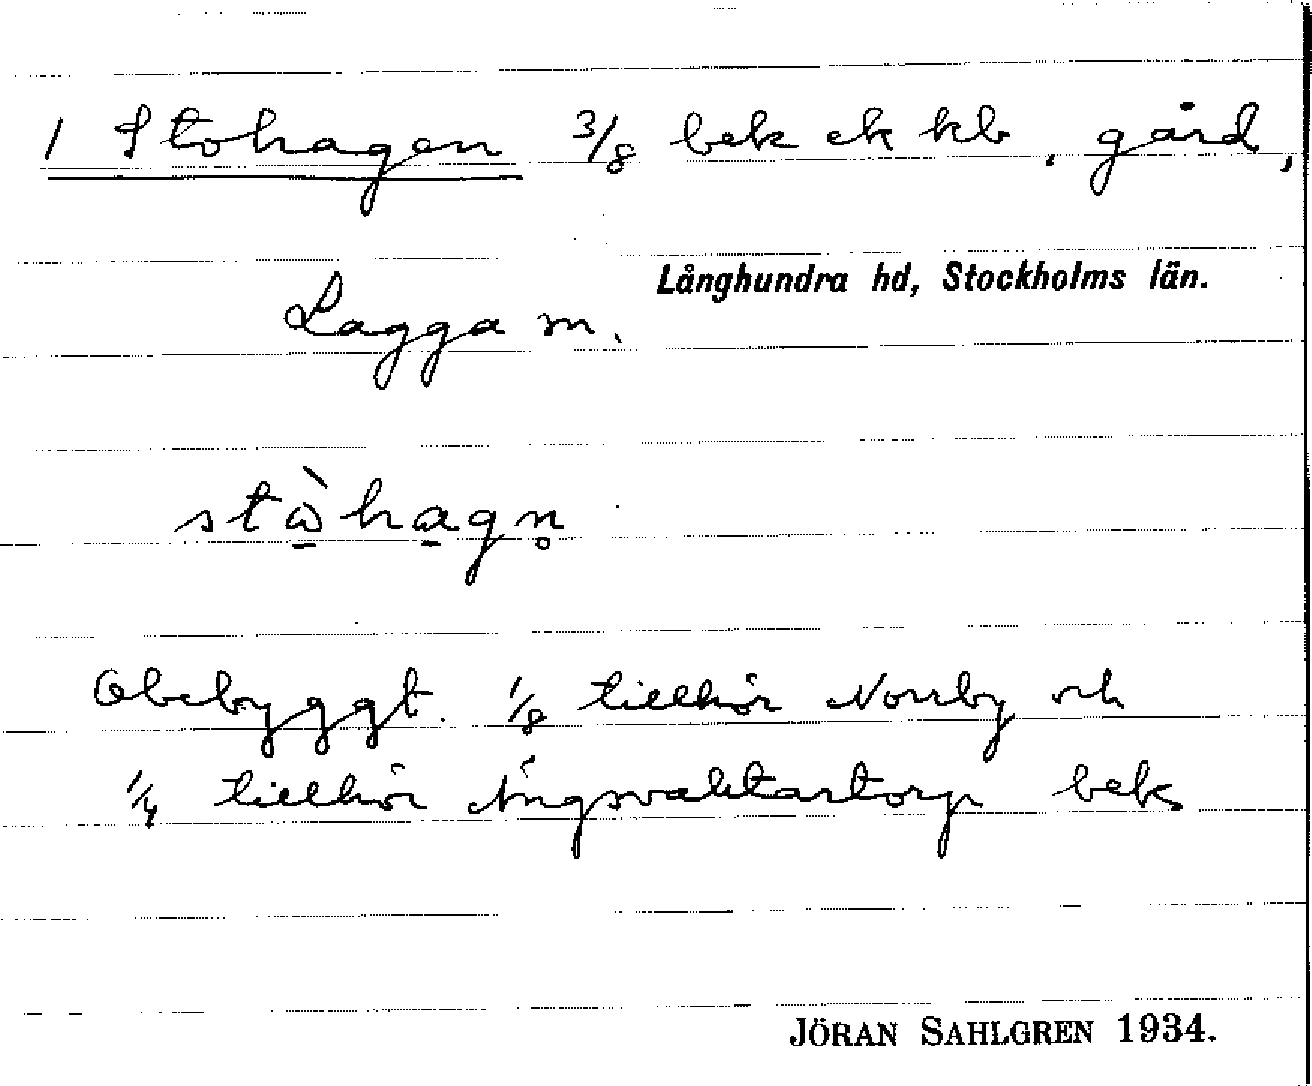 1 Stohagen 3/8 bek ek kb, gård,
Långhundra hd, Stockholms län.
Lagga sn.
stὼhagn̥
Obebyggt. 1/8 tillhör Norrby och
1/4 tillhör Ängsvaktartorp beks
JÖRAN SAHLGREN 1934.